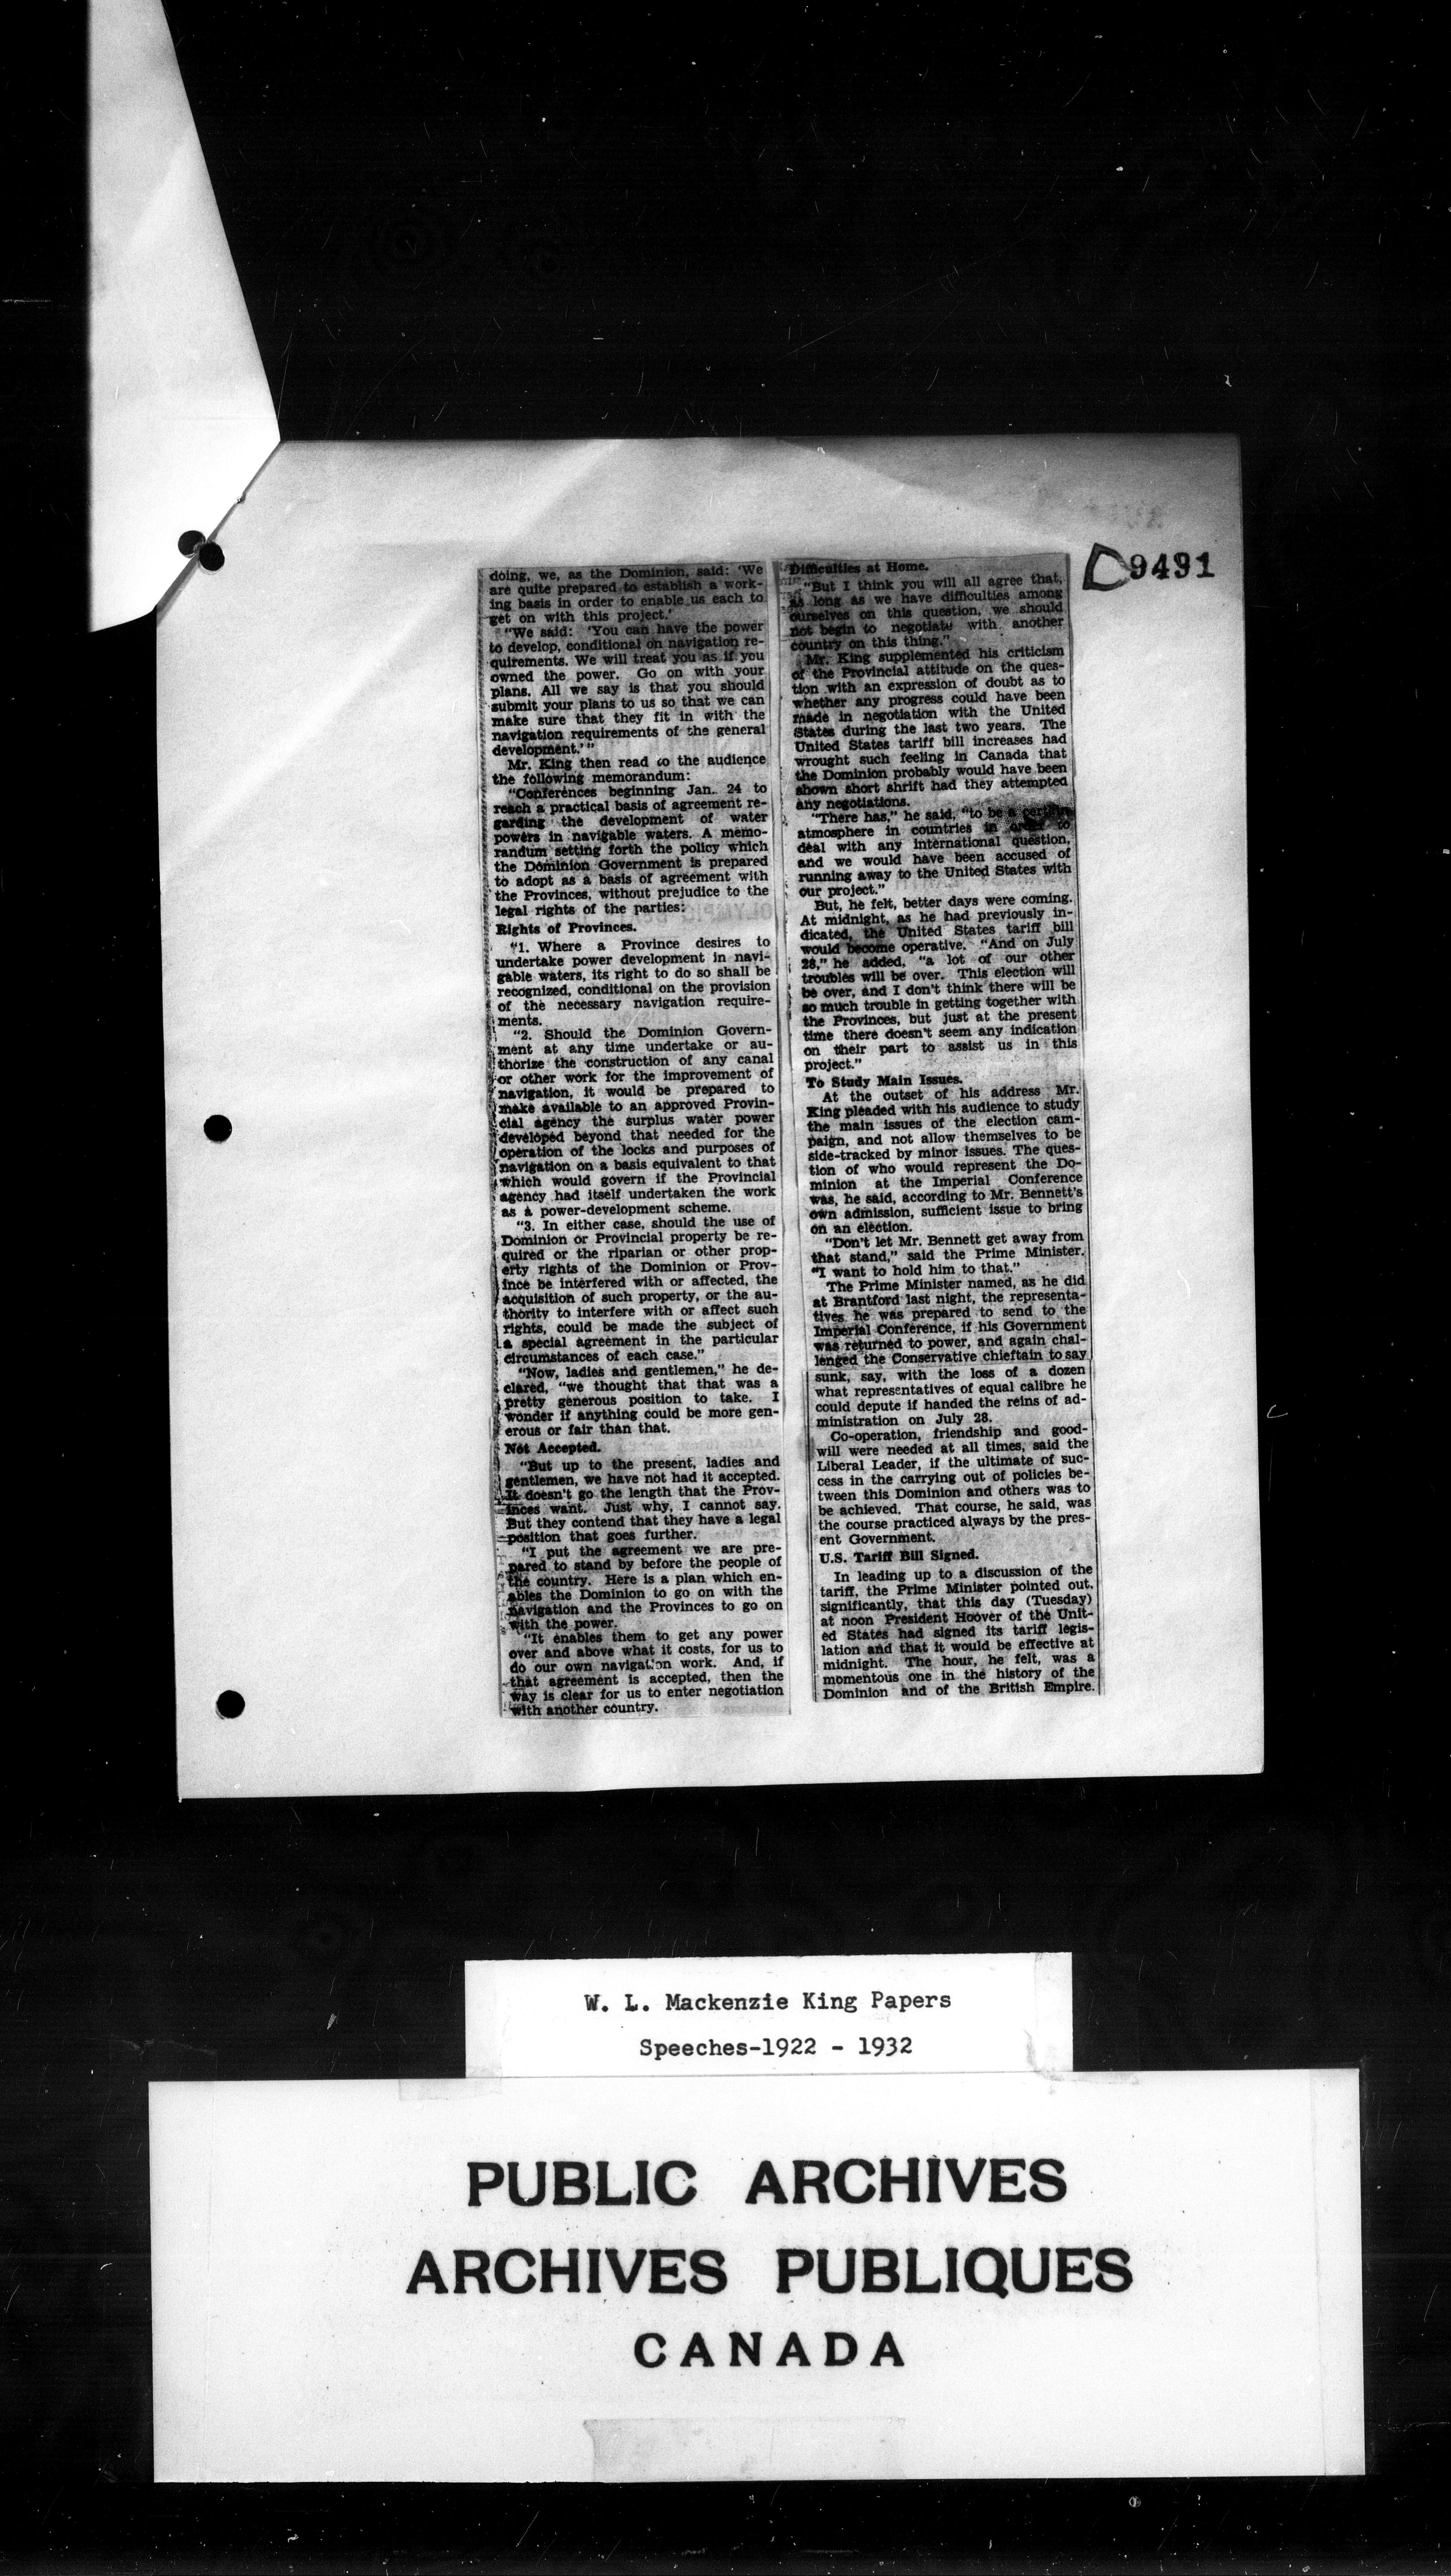 D9491
doing, we, as the Dominion, said: 'We
are quite prepared to establish a work-
ing basis in order to enable us each to
get on with this project.'
"We said: 'You can have the power
to develop, conditional on navigation re-
quirements. We will treat you as if you
owned the power. Go on with your
plans. All we say is that you should
submit your plans to us so that we can
make sure that they fit in with the
navigation requirements of the general
development.'"
Mr. King then read to the audience
the following memorandum:
"Conferences beginning Jan. 24 to
reach a practical basis of agreement re-
garding the development of water
powers in navigable waters. A memo-
randum setting forth the policy which
the Dominion Government is prepared
to adopt as a basis of agreement with
the Provinces, without prejudice to the
legal rights of the parties:
Rights of Provinces.
"1. Where a Province desires to
undertake power development in navi-
gable waters, its right to do so shall be
recognized, conditional on the provision
of the necessary navigation require-
ments.
"2. Should the Dominion Govern-
ment at any time undertake or au-
thorize the construction of any canal
or other work for the improvement of
navigation, it would be prepared to
make available to an approved Provin-
cial agency the surplus water power
developed beyond that needed for the
operation of the locks and purposes of
navigation on a basis equivalent to that
which would govern if the Provincial
agency had itself undertaken the work
as a power-development scheme.
"3. In either case, should the use of
Dominion or Provincial property be re-
quired or the riparian or other prop-
erty rights of the Dominion or Prov-
ince be interfered with or affected, the
acquisition of such property, or the au-
thority to interfere with or affect such
rights, could be made the subject of
a special agreement in the particular
circumstances of each case."
"Now, ladies and gentlemen," he de-
clared, "we thought that that was a
pretty generous position to take. I
wonder if anything could be more gen-
erous or fair than that.
Not Accepted.
"But up to the present, ladies and
gentlemen, we have not had it accepted.
It doesn't go the length that the Prov-
inces want. Just why, I cannot say.
But they contend that they have a legal
position that goes further.
"I put the agreement we are pre-
pared to stand by before the people of
the country. Here is a plan which en-
ables the Dominion to go on with the
navigation and the Provinces to go on
with the power.
"It enables them to get any power
over and above what it costs, for us to
do our own navigation work. And, if
that agreement is accepted, then the
way is clear for us to enter negotiation
with another country.
Difficulties at Home.
"But I think you will all agree that,
as long as we have difficulties among
ourselves on this question, we should
not begin to negotiate with another
country on this thing."
Mr. King supplemented his criticism
of the Provincial attitude on the ques-
tion with an expression of doubt as to
whether any progress could have been
made in negotiation with the United
States during the last two years. The
United States tariff bill increases had
wrought such feeling in Canada that
the Dominion probably would have been
shown short shrift had they attempted
any negotiations.
"There has," he said, "to be a certain
atmosphere in countries in order to
deal with any international question,
and we would have been accused of
running away to the United States with
our project."
But, he felt, better days were coming.
At midnight, as he had previously in-
dicated, the United States tariff bill
would become operative. "And on July
28," he added, "a lot of our other
troubles will be over. This election will
be over, and I don't think there will be
so much trouble in getting together with
the Provinces, but just at the present
time there doesn't seem any indication
on their part to assist us in this
project."
To Study Main Issues.
At the outset of his address Mr.
King pleaded with his audience to study
the main issues of the election cam-
paign, and not allow themselves to be
side-tracked by minor issues. The ques-
tion of who would represent the Do-
minion at the Imperial Conference
was, he said, according to Mr. Bennett's
own admission, sufficient issue to bring
on an election.
"Don't let Mr. Bennett get away from
that stand," said the Prime Minister.
"I want to hold him to that."
The Prime Minister named, as he did
at Brantford last night, the representa-
tives he was prepared to send to the
Imperial Conference, if his Government
was returned to power, and again chal-
lenged the Conservative chieftain to say
sunk, say, with the loss of a dozen
what representatives of equal calibre he
could depute if handed the reins of ad-
ministration on July 28.
Co-operation, friendship and good-
will were needed at all times, said the
Liberal Leader, if the ultimate of suc-
cess in the carrying out of policies be-
tween this Dominion and others was to
be achieved. That course, he said, was
the course practiced always by the pres-
ent Government.
U.S. Tariff Bill Signed.
In leading up to a discussion of the
tariff, the Prime Minister pointed out,
significantly, that this day (Tuesday)
at noon President Hoover of the Unit-
ed States had signed its tariff legis-
lation and that it would be effective at
midnight. The hour, he felt, was a
momentous one in the history of the
Dominion and of the British Empire.
W. L. Mackenzie King Papers
Speeches-1922 - 1932
PUBLIC ARCHIVES
ARCHIVES PUBLIQUES
CANADA